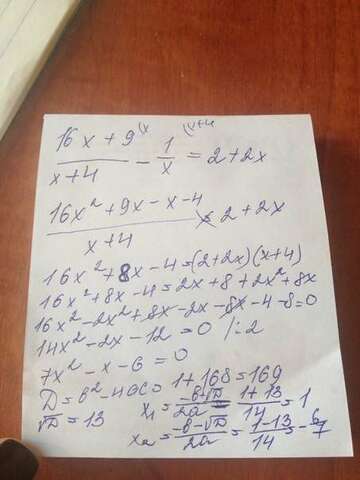 (x (x+4
16x+9/x+4 - 1/x = 2+2x
16x²+9x-x-4/x+4 = 2+2x
16x²+8x-4=(2+2x)(x+4)
16x²+8x-4=2x+8+2x²+8x
16x²-2x²+8x-2x-8x-4-8=0
14x²-2x-12=0 /:2
7x²-x-6=0
D=b²-4ac=1+168=169
√D=13 x₁=-b+√D/2a=1+13/14=1
x₂=-b-√D/2a=1-13/14=-6/7